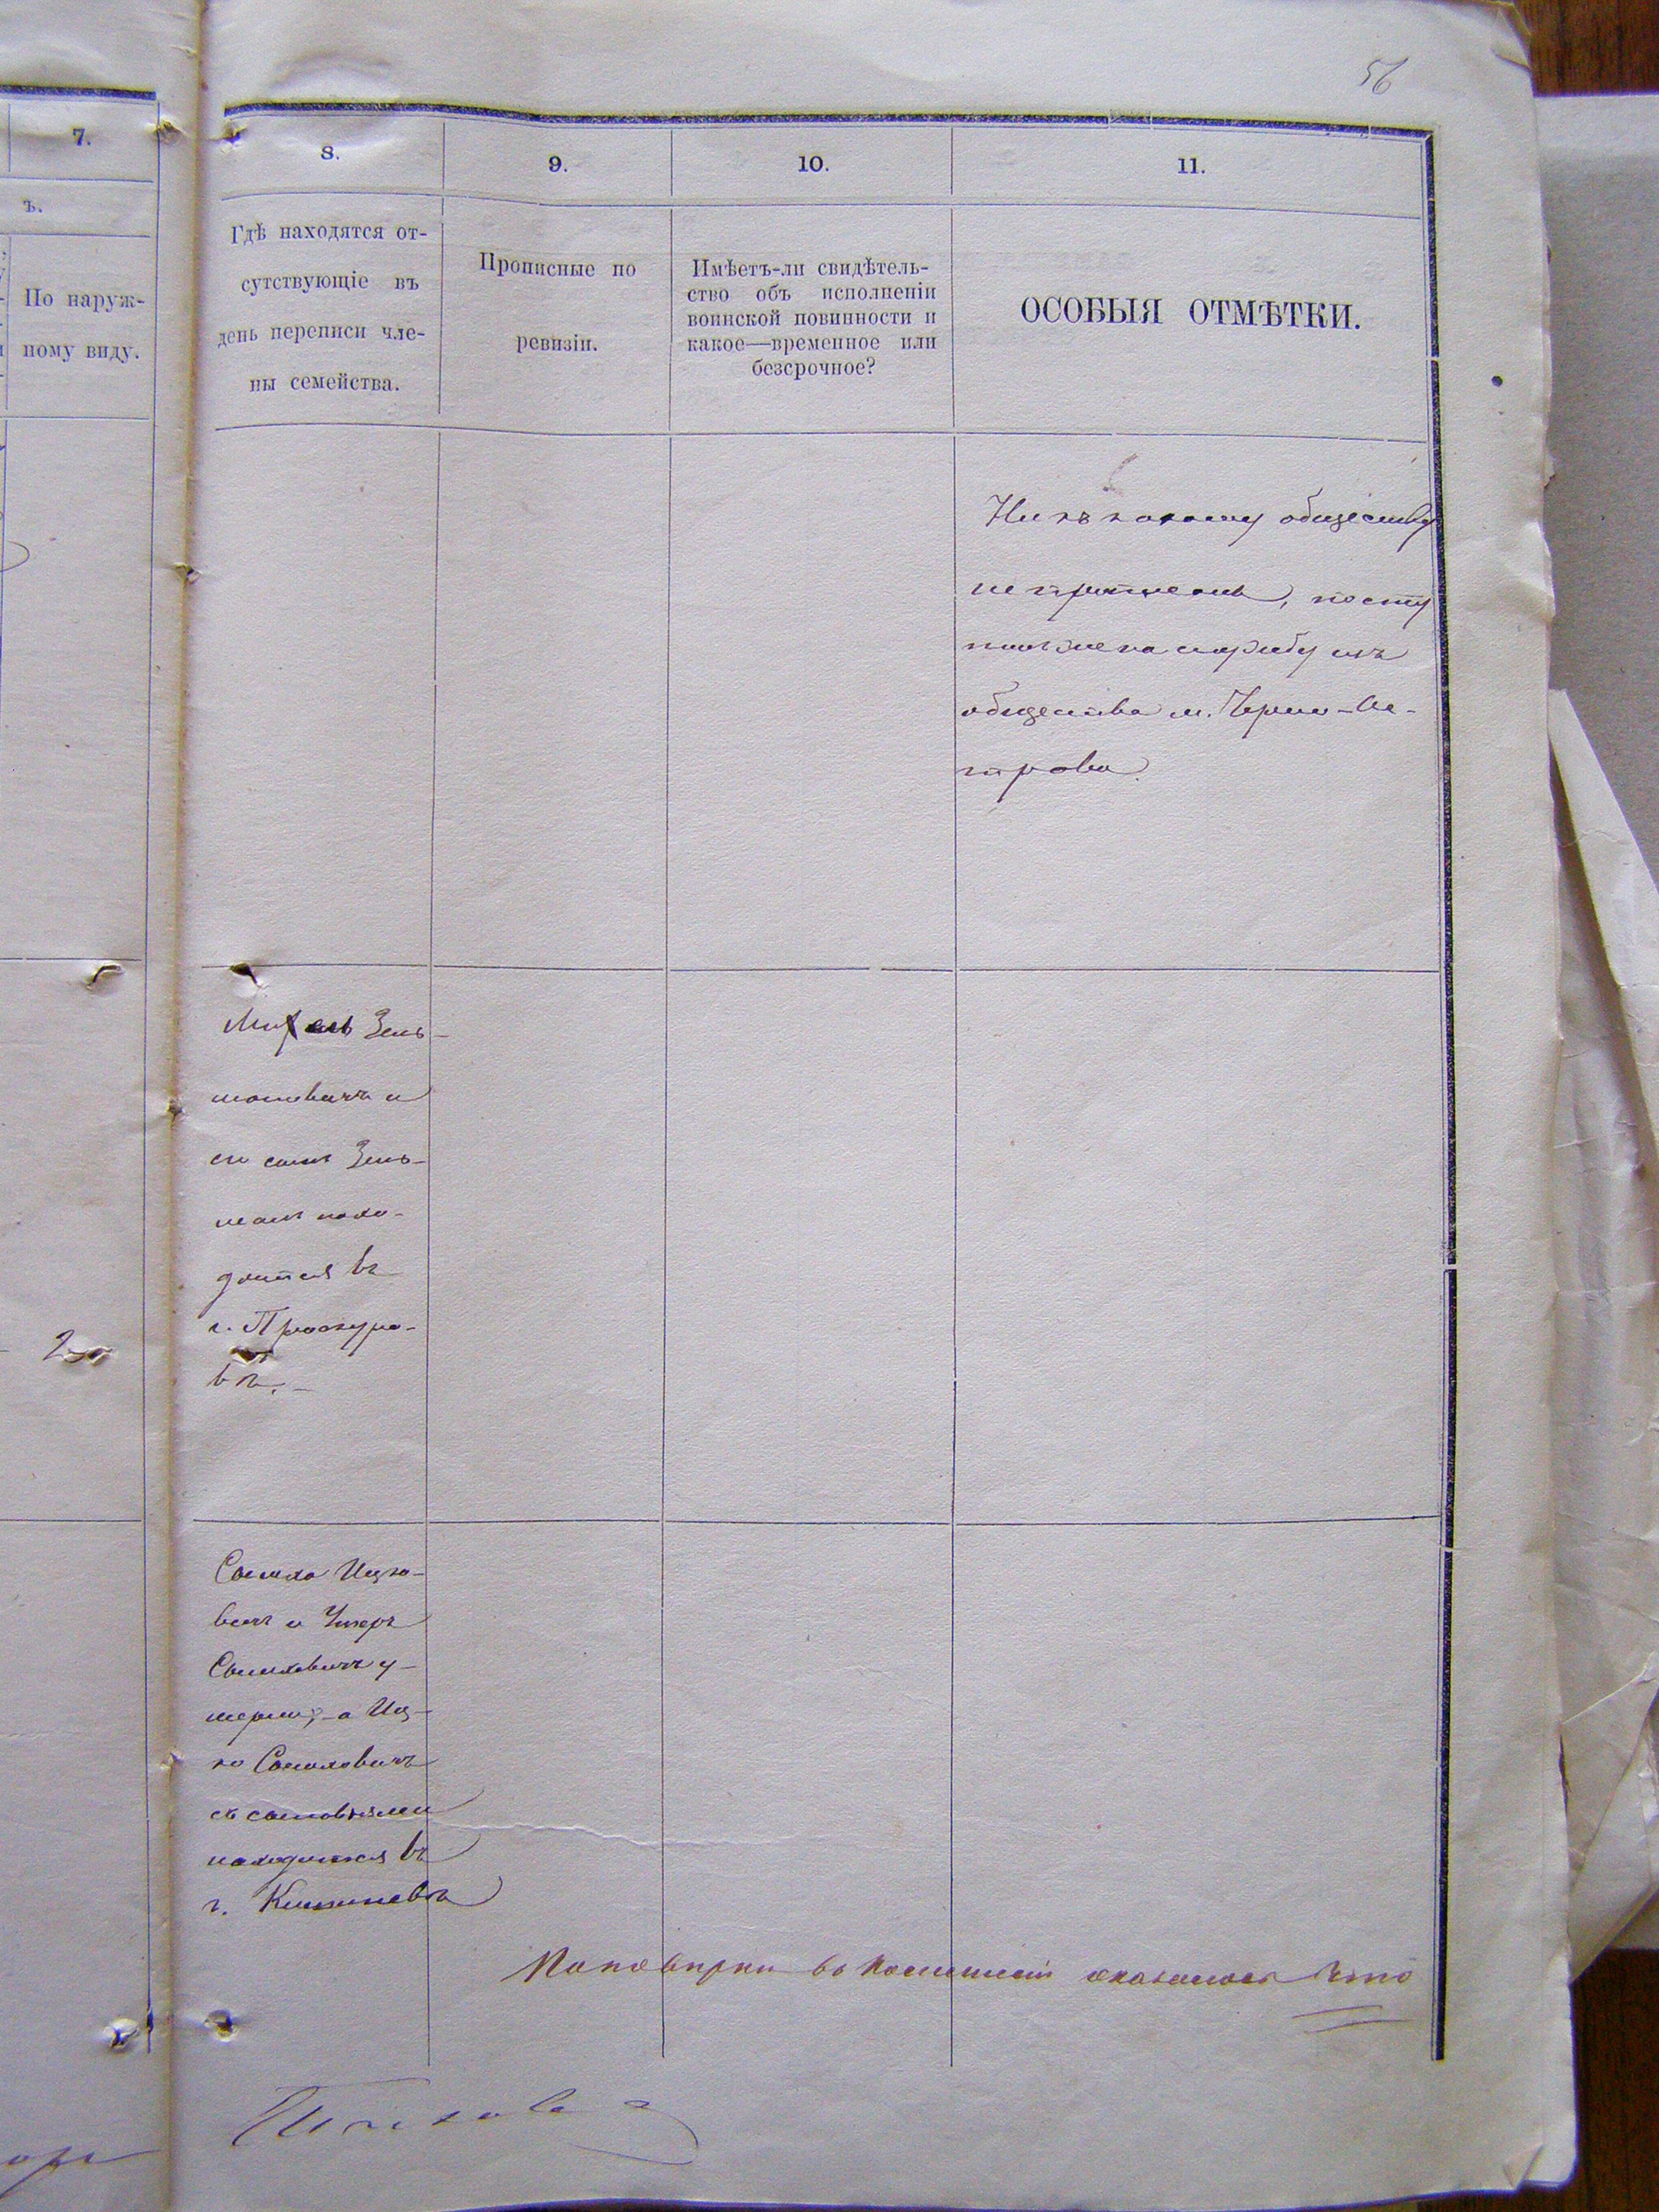 56
7.
8.
9.
10.
11.
ъ.
По наруж-
ному виду.
Гдѣ находятся от-
сутствующіе въ
день переписи чле-
ны семейства.
Прописные по
ревизіи.
Имѣетъ-ли свидѣтель-
ство объ исполненіи
воинской повинности и
какое—временное или
безсрочное?
ОСОБЫЯ ОТМѢТКИ.
Ни къ какому обществу
не приписанъ, посту
пилъ на службу изъ
общества м. Черно-Ос-
трова.
Михель Зель-
мановичъ и
его сынъ Зель-
манъ нахо-
дится въ
г. Проскуро-
вѣ.
2
Сомха Ицко-
вичъ и
Сомховичъ у-
мерли, а Иц-
ко Сомховичъ
съ сыновьями
находится въ
г. Кишиневѣ
По повѣрки во оказалось что